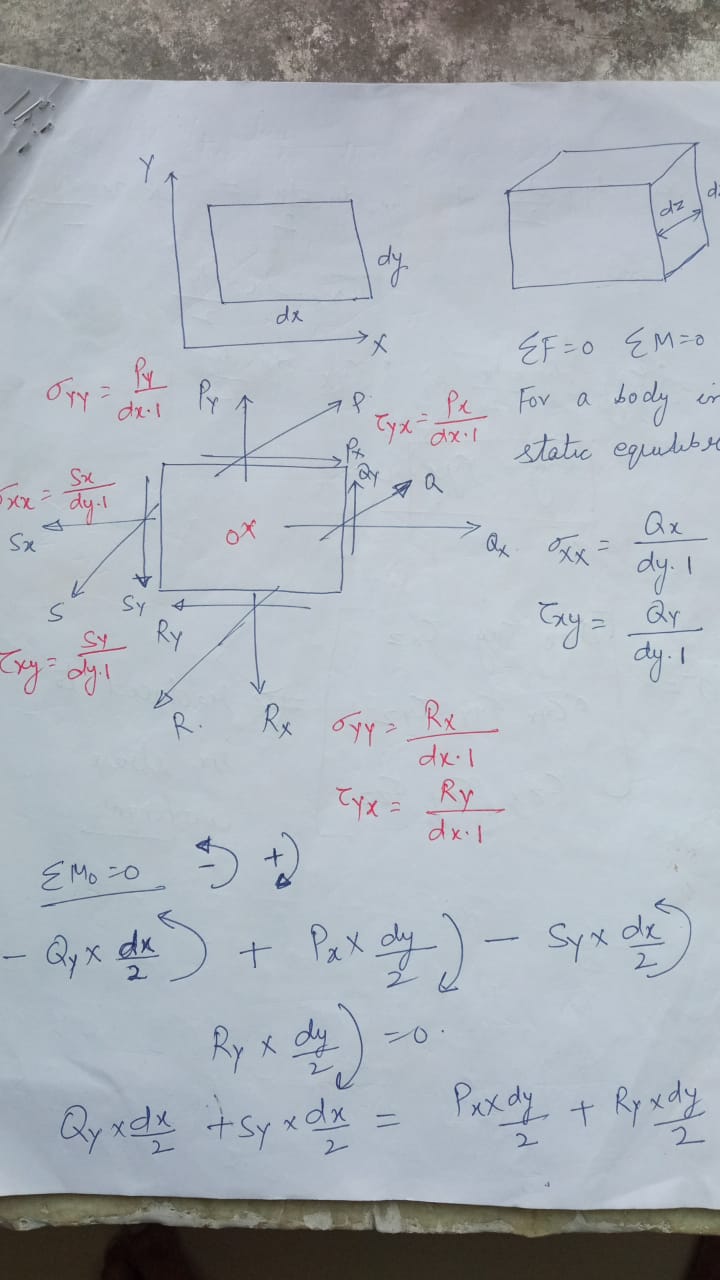 Y
dy
dx
X
dz
ΣF=0 ΣM=0
For a body in
static
σyy = Py/dx.1
Py
P
τyx = Px/dx.1
Px
Qy
Q
σxx = Sx/dy.1
Sx
O
Qx
σxx = Qx/dy.1
S
Sy
Ry
τxy = Qy/dy.1
τxy = Sy/dy.1
R.
Rx
σyy = Rx/dx.1
τyx = Ry/dx.1
ΣMo=0 - +
- Qy x dx/2 + Px x dy/2 - Sy x dx/2
Ry x dy/2 =0.
Qy x dx/2 + Sy x dx/2 = Px x dy/2 + Ry x dy/2